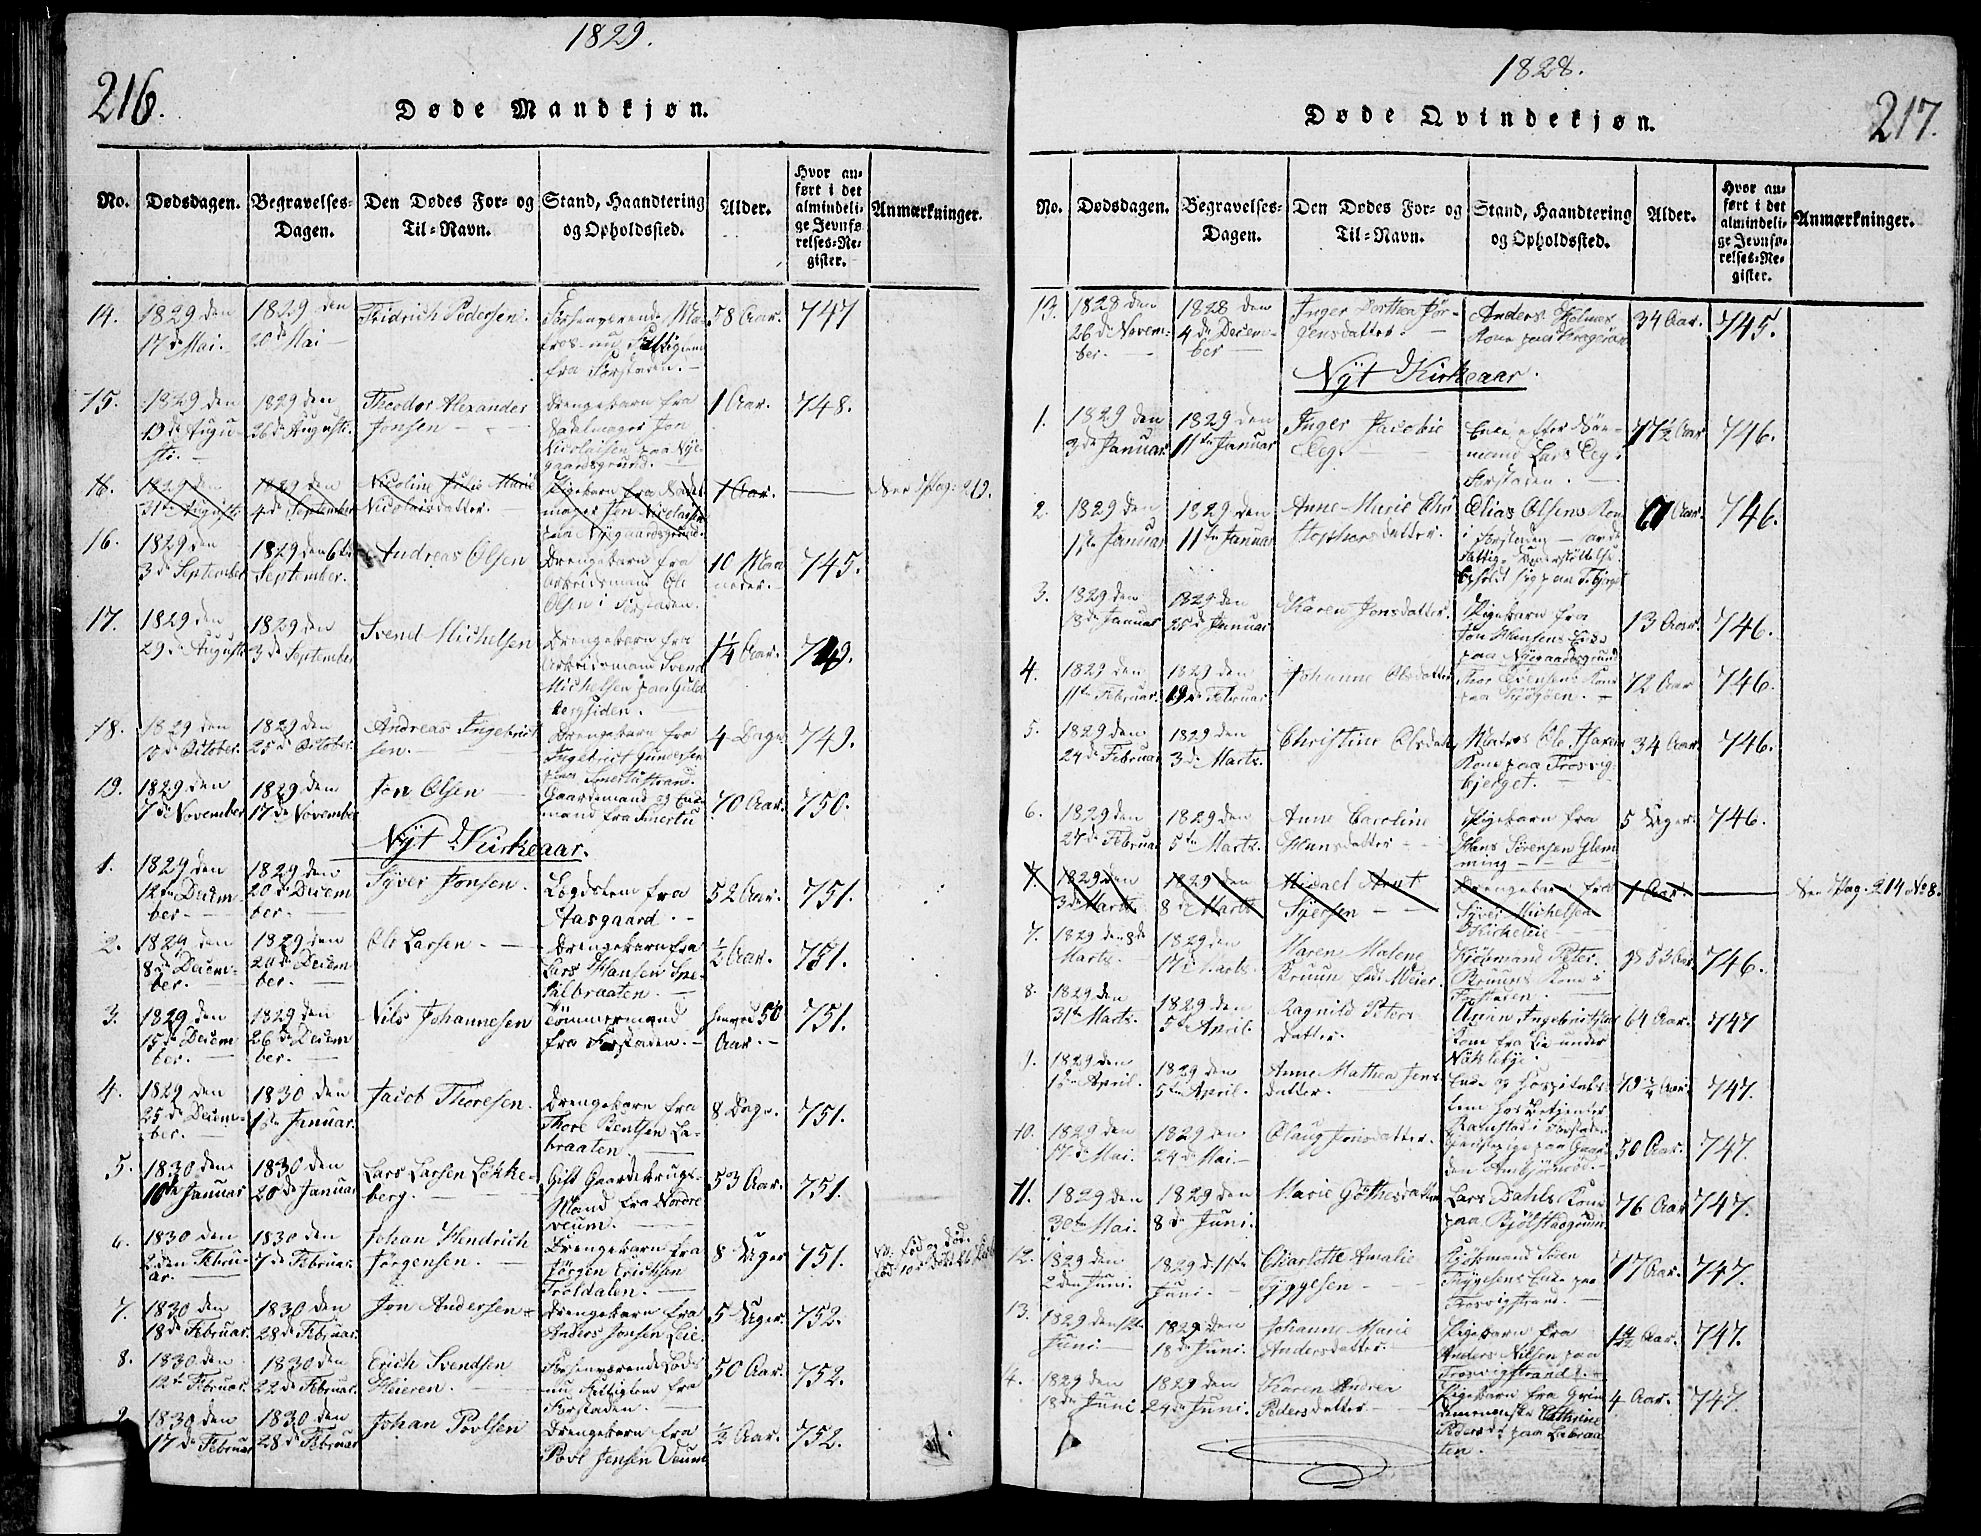 1829.
216.
Døde Mandkjøn.
No.
Dødsdagen.
Begravelses-
Dagen.
Den Dødes For- og
Til-Navn.
Stand, Haandtering
og Opholdssted.
Alder.
Hvor an-
ført i det
almindeli-
ge Jevnfø-
relses-Re-
gister.
Anmærkninger.
14.
1829 den
17de Mai.
1829 den
20de Mai
Fridrich Pedersen.
Forhenværende Ma-
tros nu Fattiglem
fra Forstaden.
58 Aar.
747
15.
1829 den
19de Augu-
sti.
1829 den
26de Augusti.
Theodor Alexander
Jonsen
Drengebarn fra
Sadelmager Jon
Nicolaisen paa Nye-
gaardsgrund.
1 Aar.
748.
16.
1829 den
31te Augusti
1829 den
4de September
Nicoline Julie Marie
Nicolaisdatter.
Pigebarn fra Sadel-
mager Jon Nicolaisen
paa Nyegaardsgrund.
1 Aar.
See Pag: 219.
16.
1829 den
3de September
1829 den 6te
September.
Andreas Olsen
Drengebarn fra
Arbeidsmand Ole
Olsen i Forstaden.
10 Maa-
neder.
745.
17.
1829 den
29de Augusti
1829 den
3de September
Svend Michelsen
Drengebarn fra
Arbeidsmand Svend
Michelsen paa Guld-
bergsiden.
1¼ Aar.
749.
18.
1829 den
October.
1829 den
25de October.
Andreas Ingebrict
sen.
Drengebarn fra
Ingebrict Gundersen
paa Smertustrand
4 Dage.
749.
19.
1829 den
7de November
1829 den
17de November
Jon Olsen
Gaardemand og Enke-
mand fra Smertu
70 Aar.
750.
Nyt Kirkeaar.
1.
1829 den
12te Decem-
ber.
1829 den
20de Decem
ber.
Syver Jonsen.
Legdslem fra
Aasgaard.
52 Aar.
751.
2.
1829 den
8de Decem-
ber.
1829 den
20de Decem
ber.
Ole Larsen.
Drengebarn fra
Lars Hansen
½ Aar.
751.
3.
1829 den
15de Decem
ber.
1829 den
26de Decem
ber.
Nils Johannesen
Tømmermand
fra Forstaden.
henved 50
Aar.
751.
4.
1829 den
25de Decem-
ber.
1830 den
1ste Januar.
Jacob Thoresen.
Drengebarn fra
Thore Bentsen La-
braaten
8 Dage.
751.
5.
1830 den
10de Januar
1830 den
20de Januar
Lars Larsen Løkke-
berg.
Gift Gaardbruger-
Mand fra Nordre
Veum.
53 Aar.
751.
6.
1830 den
2den Febru-
ar.
1830 den
7de Februar.
Johan Hendrich
Jørgensen.
Drengebarn fra
Jørgen Erichsen
Troldalen.
8 Uger
751.
7.
1830 den
18de Februar.
1830 den
28de Februar.
Jon Andersen
Drengebarn fra
Anders Jonsen Lie.
5 Uger.
752.
8.
1830 den
12te Februar.
1830 den
22de Februar.
Erich Svendsen
Heieren.
Forhenværende Lods
nu Fattiglem fra
Forstaden.
50 Aar.
752.
9.
1830 den
17de Februar
1830 den
28de Februar
Johan Povlsen
Drengebarn fra
Povl Jensen Veum
½ Aar.
752.
1828.
217.
Døde Qvindekjøn.
No.
Dødsdagen.
Begravelses-
Dagen.
Den Dødes For- og
Til-Navn.
Stand, Haandtering
og Opholdssted.
Alder.
Hvor an-
ført i det
almindeli-
ge Jevnfø-
relses-Re-
gister.
Anmærkninger.
13.
1828 den
26de Novem-
ber.
1828 den
4de Decem-
ber
Inger Dorthea Jør-
gensdatter.
Anders Holmes
Kone paa Kragerøe
34 Aar.
745.
Nyt Kirkeaar.
1.
1829 den
3de Januar
1829 den
11te Januar
Inger Jacobie
Eeg.
Enke efter Søe-
mand Lars Eeg i
Forstaden.
77½ Aar
746.
2.
1829 den
1ste Januar
1829 den
11te Januar
Anne Marie Chri
stophersdatter.
Elias Olsens Kone
i Forstaden
67 Aar.
746.
3.
1829 den
18de Januar
1829 den
25de Januar
Karen Jonsdatter.
Pigebarn fra
Jon Hansens Enke
paa Nyegaardsgrund
13 Aar.
746.
4.
1829 den
11te Februar.
1829 den
19de Februar
Johanne Olsdatter
Thor Evensens Kone
paa
72 Aar
746.
5.
1829 den
24de Februar
1829 den
3de Marts.
Christine Olsdatter
Matros Ole
Kone paa Trosvig-
bjerget.
34 Aar.
746.
6.
1829 den
27de Februar
1829 den
5te Marts.
Anne Caroline
Hansdatter
Pigebarn fra
Hans Sørensen Glem-
ming
5 Uger.
746.
7.
1829 den
3de Marts
1829 den
8de Marts
Michael Arnt
Syversen
Drengebarn fra
Syver Michelsen
Kirkeleie
1 Aar.
See Pag. 214 No 8.
7.
1829 den 8de
Marts.
1829 den
17de Marts.
Maren Malene
Bruun født Meier.
Kjøbmand Peter
Bruuns Kone i
Forstaden.
53 Aar.
746.
8.
1829 den
31te Marts.
1829 den
5te April.
Ragnild Peters
datter.
Kone fra Lie under
Nøklebye.
64 Aar.
747
9.
1829 den
1ste April.
1829 den
5te April.
Anne Mathea Jens
datter.
Enke og Hospitals-
lem hos Betjenter
Ramstad i Forstaden
79¾ Aar.
747.
10.
1829 den
17de Mai.
1829 den
24de Mai
Olaug Jonsdatter.
Tjenestepige paa Gaar-
den
50 Aar.
747.
11.
1829 den
30te Mai.
1829 den
8de Juni.
Marie Gøthesdatter
Lars Dahls Kone
paa Bjølstadgrund
76 Aar
747.
12.
1829 den
2den Juni.
1829 d. 11te
Juni.
Charlotte Amalie
Tyggesen
Kjøbmand Sven
Tryggesens Enke paa
Trosvigstrand.
77 Aar.
747.
13.
1829 den 12te
Juni.
1829 den
18de Juni.
Johanne Marie
Andersdatter
Pigebarn fra
Anders Nilsen paa
Trosvigstrand.
Aar.
747.
14.
1829 den
18de Juni
1829 den
24de Juni.
Karen Andrea
Pedersdatter
Pigebarn fra Qvin-
demenneske Cathrine
Pedersd: paa Labraa-
ten.
4 Aar.
747.